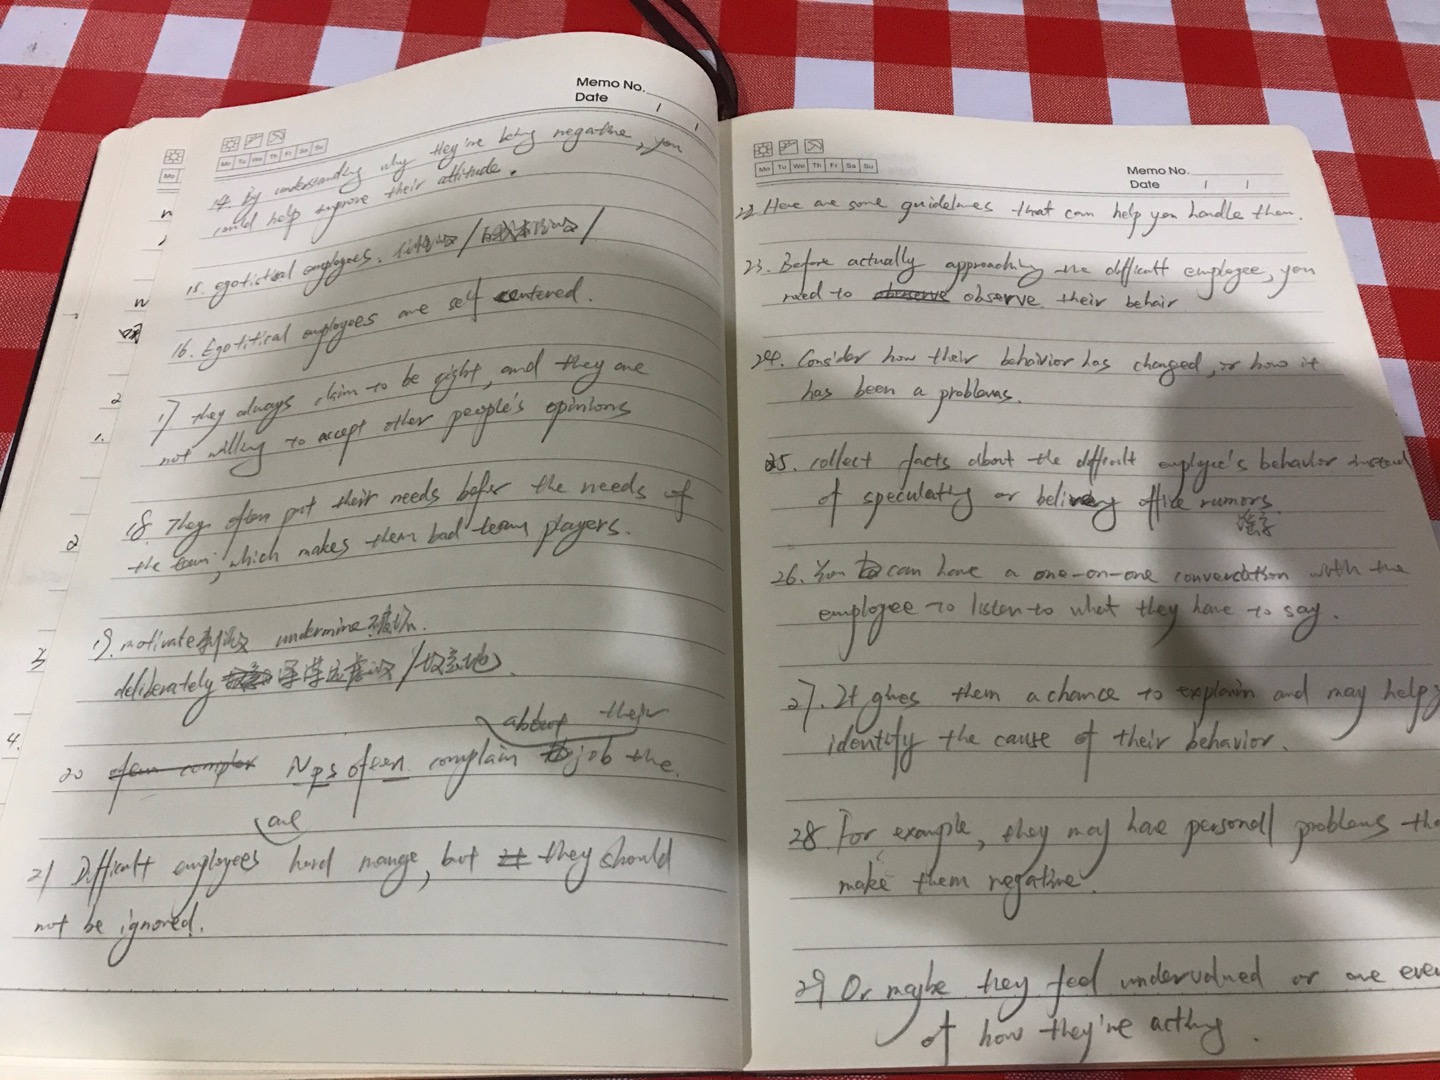 Memo No.
Date
Mo Tu We Th Fr Sa Su
14. By understanding why they're being negative, you
could help improve their attitude.
15. egotistical employees.
16. Egotitical employees are self centered.
17 they always claim to be right, and they are
not willing to accept other people's opinions
18. They often put their needs befor the needs of
the team, which makes them bad team players.
19. motivate undermine 破坏.
deliberately
about their
20 Nps often complain job the.
are
21 Difficult employees hard mange, but they should
not be ignored.
Mo
2
1.
2
3
4.
Memo No.
Date
Mo Tu We Th Fr Sa Su
22 Here are some guidelines that can help you handle them.
23. Before actually approaching the difficult employee, you
need to observe their behair
24. Consider how their behaivior has changed, or how it
has been a problems.
25. collect facts about the difficult employee's behavior instead
of speculating or office rumors.
谣言
26. You can have a one-on-one conversation with the
employee to listen to what they have to say.
27. It gives them a chance to explain and may help
identify the cause of their behavior.
28. For example, they may have personal problems
make them negative.
29 Or maybe they feel undervalued or are
of how they're acting.